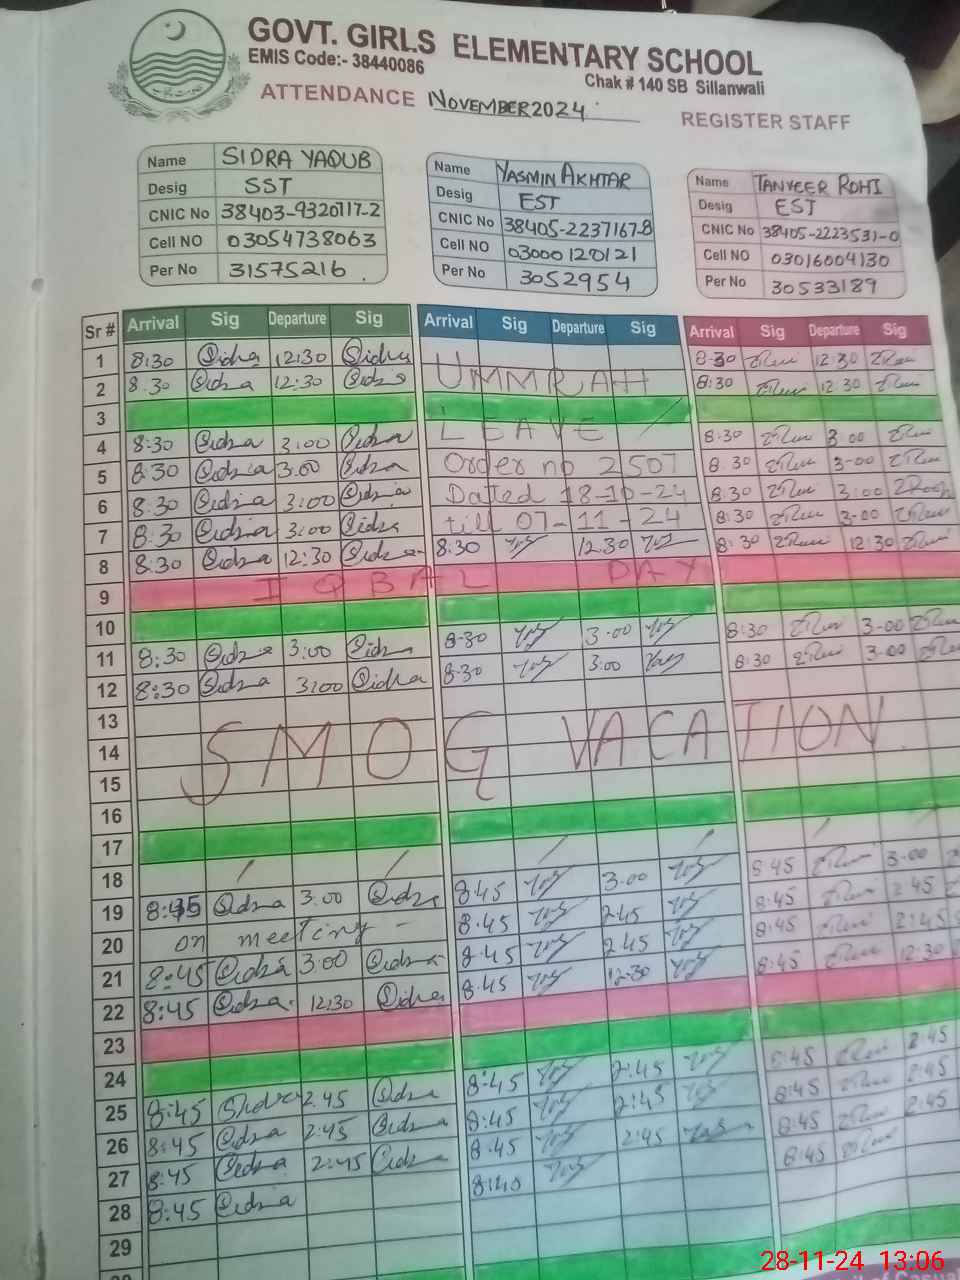 GOVT. GIRLS ELEMENTARY SCHOOL
EMIS Code:- 38440086
Chak # 140 SB Sillanwali
ATTENDANCE NOVEMBER 2024
REGISTER STAFF
Name SIDRA YAQUB
Desig SST
CNIC No 38403-9320717-2
Cell NO 03054738063
Per No 31575216
Name YASMIN AKHTAR
Desig EST
CNIC No 38405-2237167-8
Cell NO 03000120121
Per No 3052954
Name TANVEER ROHI
Desig EST
CNIC No 38405-2223531-0
Cell NO 03016004130
Per No 30533189
Sr # Arrival Sig Departure Sig Arrival Sig Departure Sig Arrival Sig Departure Sig
1 8:30 Sidra 12:30 Sidra UMMRAH 8:30 12:30
2 8:30 Sidra 12:30 Sidra 8:30 12:30
3
4 8:30 Sidra 3:00 Sidra LEAVE 8:30 3:00
5 8:30 Sidra 3:00 Sidra Order no 2507 8:30 3-00
6 8:30 Sidra 3:00 Sidra Dated 18-10-24 8:30 3:00
7 8:30 Sidra 3:00 Sidra till 07-11-24 8:30 3-00
8 8:30 Sidra 12:30 Sidra 8:30 12:30 8:30 12:30
9 IQBAL DAY
10
11 8:30 Sidra 3:00 Sidra 8-30 3:00 8:30 3-00
12 8:30 Sidra 3:00 Sidra 8-30 3:00 8:30 3-00
13
14 SMOG VACATION
15
16
17
18
19 8:45 Sidra 3:00 Sidra 8:45 3:00 8:45 3-00
20 on meeting 8:45 2:45 8:45 2:45
21 8:45 Sidra 3:00 Sidra 8:45 2:45 8:45 2:45
22 8:45 Sidra 12:30 Sidra 8:45 12:30 8:45 12:30
23
24
25 8:45 Sidra 2:45 Sidra 8:45 2:45 8:45 2:45
26 8:45 Sidra 2:45 Sidra 8:45 2:45 8:45 2:45
27 8:45 Sidra 2:45 Sidra 8:45 2:45 8:45 2:45
28 8:45 Sidra 8:40 8:45
29
28-11-24 13:06